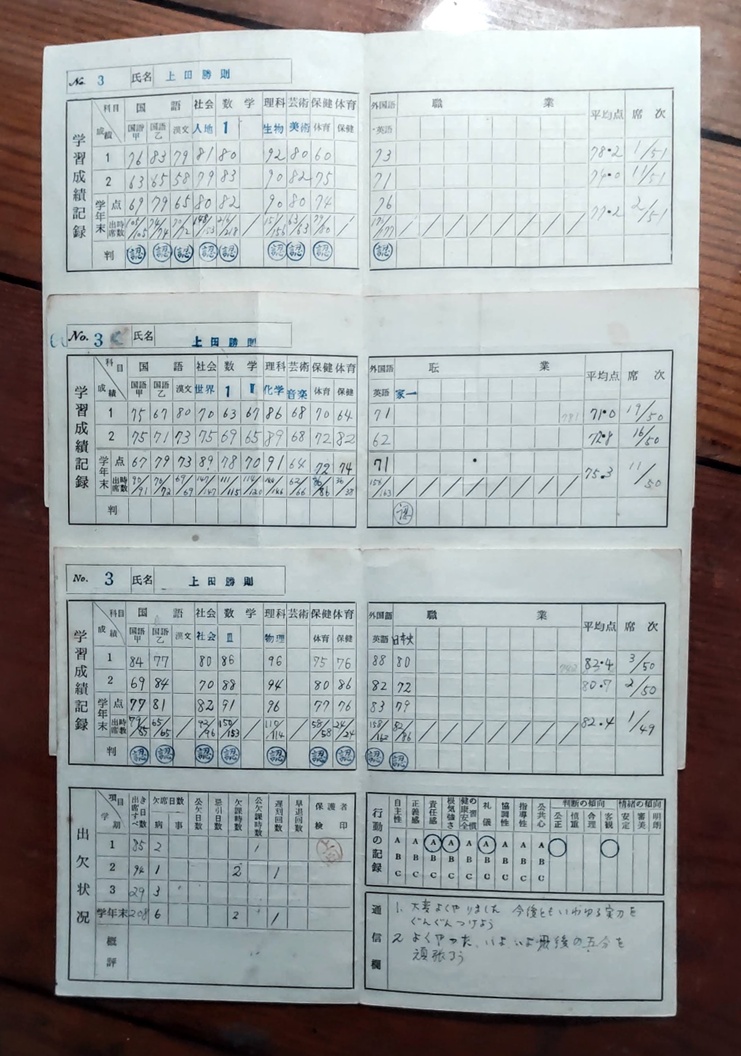 No. 3 氏名 上田勝則
科目 国語 社会 数学 理科 芸術 保健体育 外国語 職業 平均点 席次
成績 国語甲 国語乙 漢文 人地 1 生物 美術 体育 保健 英語
学習成績記録
1 76 83 79 81 80 92 80 60 73 78.2 1/51
2 63 65 58 79 83 90 82 75 71 74.0 11/51
学年末 点 69 79 65 80 82 90 80 74 76 77.2 2/51
出席時数 105/105
判 認 認 認 認 認 認 認 認 認
No. 3 氏名 上田勝則
科目 国語 社会 数学 理科 芸術 保健体育 外国語 職業 平均点 席次
成績 国語甲 国語乙 漢文 世界 1 II 化学 音楽 体育 保健 英語 家一
学習成績記録
1 75 67 80 70 63 67 86 68 70 64 71 71.0 19/50
2 75 71 73 75 69 65 89 68 72 82 62 72.8 16/50
学年末 点 67 79 73 89 78 70 91 64 72 74 71 75.3 11/50
出席時数 69/69 111/115 114/120 62/66 86/86 158/163
判
No. 3 氏名 上田勝則
科目 国語 社会 数学 理科 芸術 保健体育 外国語 職業 平均点 席次
成績 国語甲 国語乙 漢文 社会 III 物理 体育 保健 英語 日本史
学習成績記録
1 84 77 80 86 96 75 76 88 80 82.4 3/50
2 69 84 70 88 94 80 86 82 72 80.7 2/50
学年末 点 77 81 82 91 96 77 76 83 79 82.4 1/49
出席時数 65/65 92/96 150/153 58/58 24/24 158/162 82/86
判 認 認 認 認 認 認 認 認 認
出欠状況
項目 学期 出席すべき日数 欠席日数 病 事 公欠日数 忌引日数 欠課時数 公欠課時数 遅刻回数 早退回数 保護者検印
1 85 2 1
2 94 1 2 1
3 29 3
学年末 208 6 2 1
概評
行動の記録
自主性 正義感 責任感 根気強さ 健康安全の習慣 礼儀 協調性 指導性 公共心 判断の傾向 情緒の傾向
公正 慎重 合理 客観 安定 審美 明朗
A A A A A A A A A
B B B B B B B B B
C C C C C C C C C
通信欄
1. 大変よくやりました 今後ともいわゆる実力を
ぐんぐんつけよう
2 よくやった、いよいよ最後の五分を
頑張ろう